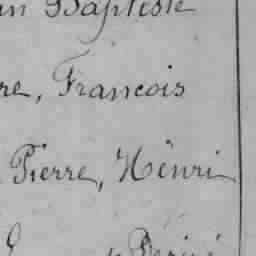 Baptiste
re, François
Pierre, Hênri